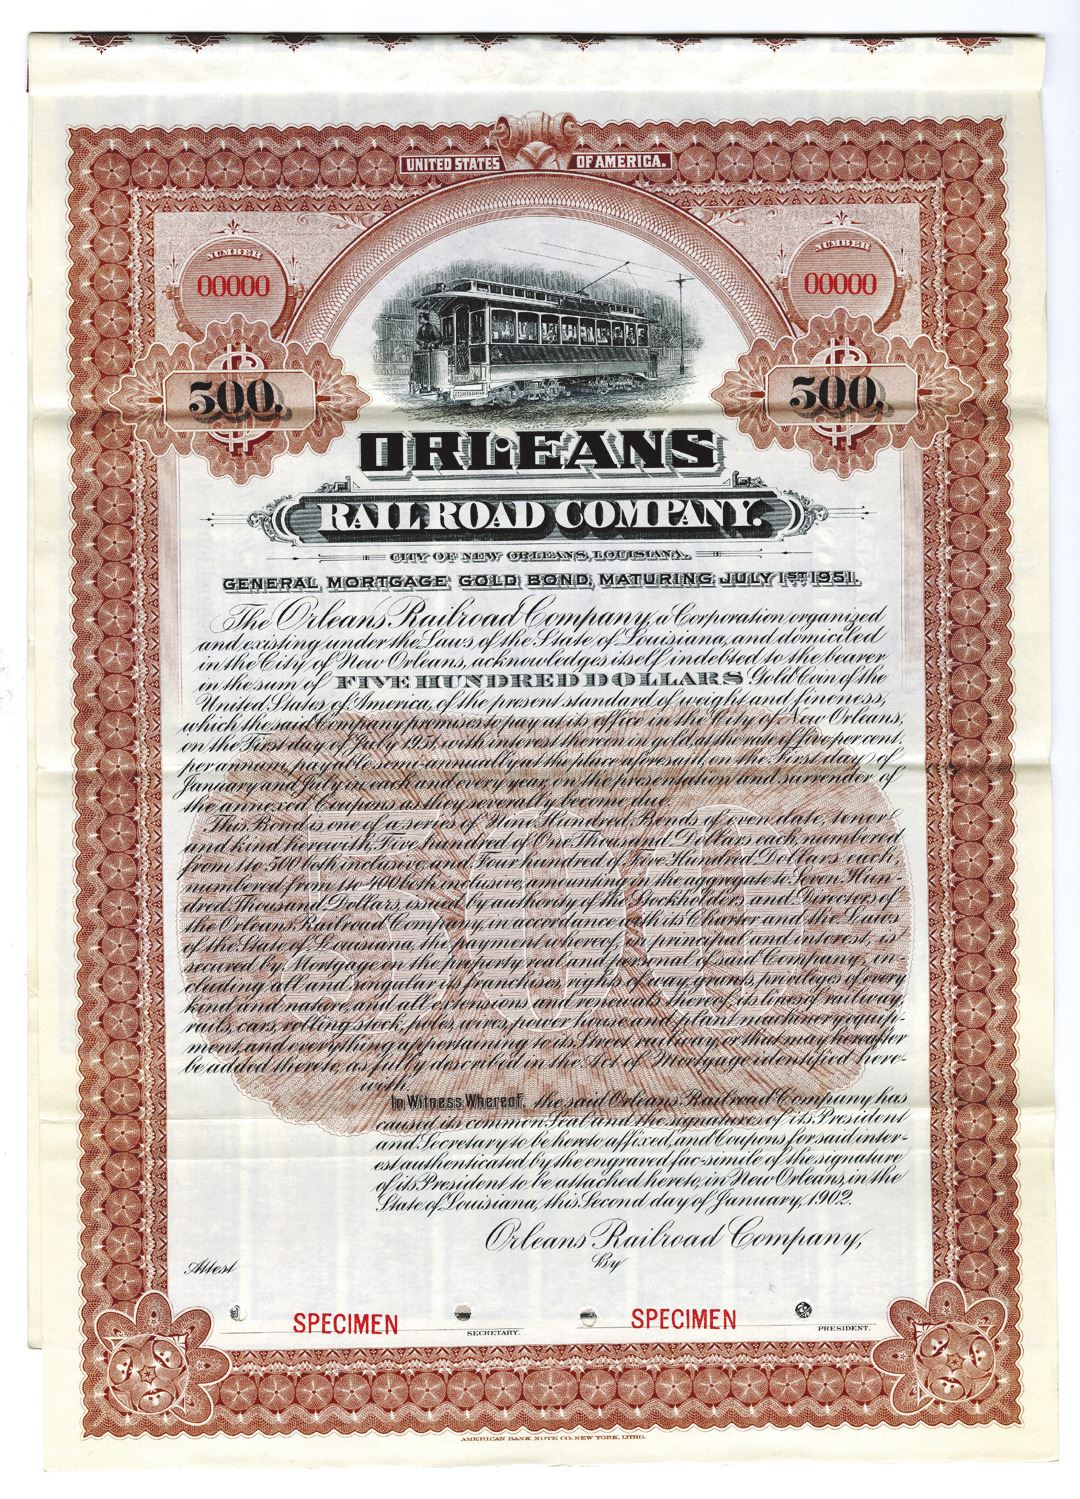 UNITED STATES OF AMERICA.
NUMBER NUMBER
00000 00000
500. 500.
ORLEANS
RAILROAD COMPANY.
CITY OF NEW ORLEANS, LOUISIANA.
GENERAL MORTGAGE GOLD BOND, MATURING JULY 1ST 1951.
The Orleans Railroad Company, a Corporation organized
and existing under the Laws of the State of Louisiana, and domiciled
in the City of New Orleans, acknowledges itself indebted to the bearer
in the sum of FIVE HUNDRED DOLLARS Gold Coin of the
United States of America, of the present standard of weight and fineness,
which the said Company promises to pay at its office in the City of New Orleans,
on the First day of July 1951, with interest thereon in gold, at the rate of five per cent.
per annum, payable semi-annually at the place aforesaid, on the First day of
January and July in each and every year, on the presentation and surrender of
the annexed Coupons as they severally become due.
This Bond is one of a series of Nine Hundred Bonds of even date, tenor
and kind herewith, Five hundred of One Thousand Dollars each, numbered
from 1 to 500 both inclusive, and Four hundred of Five Hundred Dollars each,
numbered from 1 to 400 both inclusive, amounting in the aggregate to Seven Hun-
dred Thousand Dollars, issued by authority of the Stockholders and Directors of
the Orleans Railroad Company, in accordance with its Charter and the Laws
of the State of Louisiana, the payment whereof, in principal and interest, is
secured by Mortgage on the property real and personal of said Company, in-
cluding all and singular its franchises, rights of way, grants, privileges of every
kind and nature, and all extensions and renewals thereof, its lines of railway,
rails, cars, rolling stock, poles, wires, power house and plant machinery equip-
ment, and everything appertaining to its Street railway, or that may hereafter
be added thereto, as fully described in the Act of Mortgage identified here-
with.
In Witness Whereof, the said Orleans Railroad Company has
caused its common Seal and the signatures of its President
and Secretary to be hereto affixed, and Coupons for said inter-
est authenticated by the engraved fac-simile of the signature
of its President to be attached hereto, in New Orleans, in the
State of Louisiana, this Second day of January, 1902.
Orleans Railroad Company,
Attest By
SPECIMEN SPECIMEN
SECRETARY. PRESIDENT.
AMERICAN BANK NOTE CO. NEW YORK, LITHO.